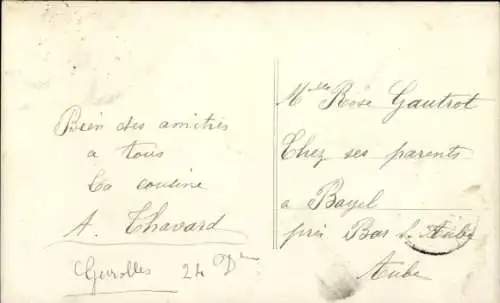 Bien des amitiés
a tous
La cousine
A. Chavard
24
Mlle Rose Gautrot
Chez ses parents
a Bayel
près Bar s. Aube
Aube